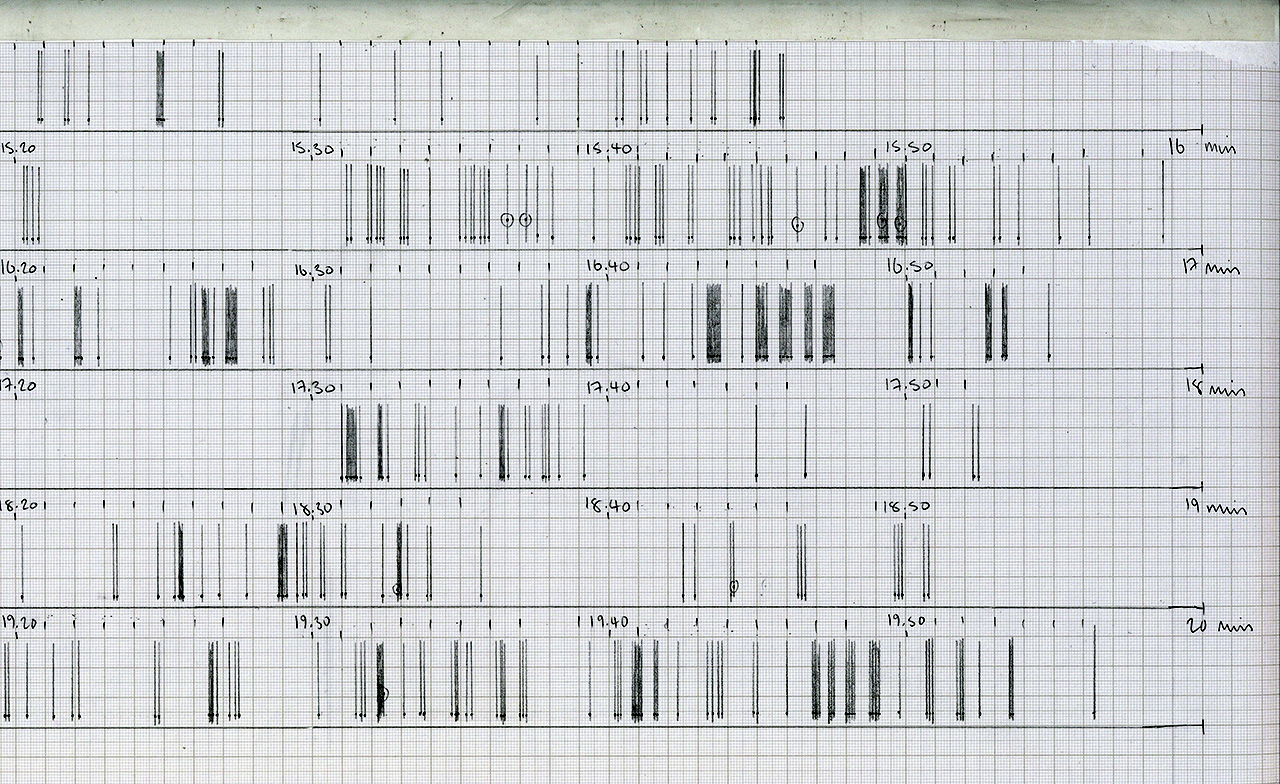 15.20 15.30 15.40 15.50 16 min
16.20 16.30 16.40 16.50 17 min
17.20 17.30 17.40 17.50 18 min
18.20 18.30 18.40 18.50 19 min
19.20 19.30 19.40 19.50 20 min